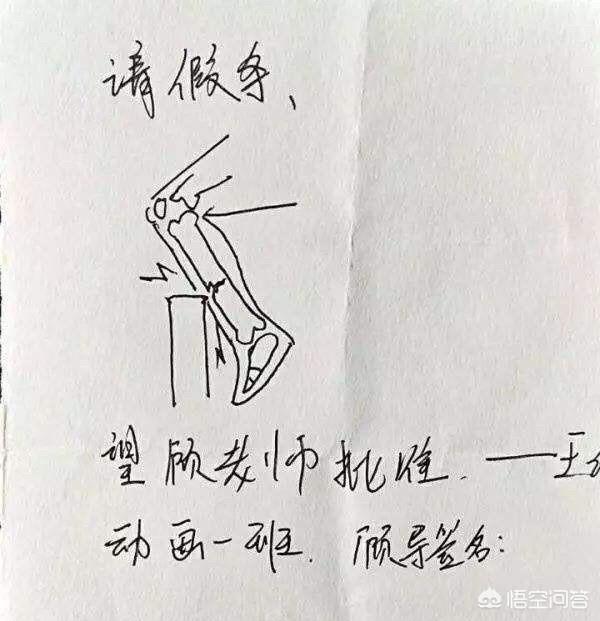 请假条、
望顾老师批准.——王
动画一班. 顾导签名:
悟空问答